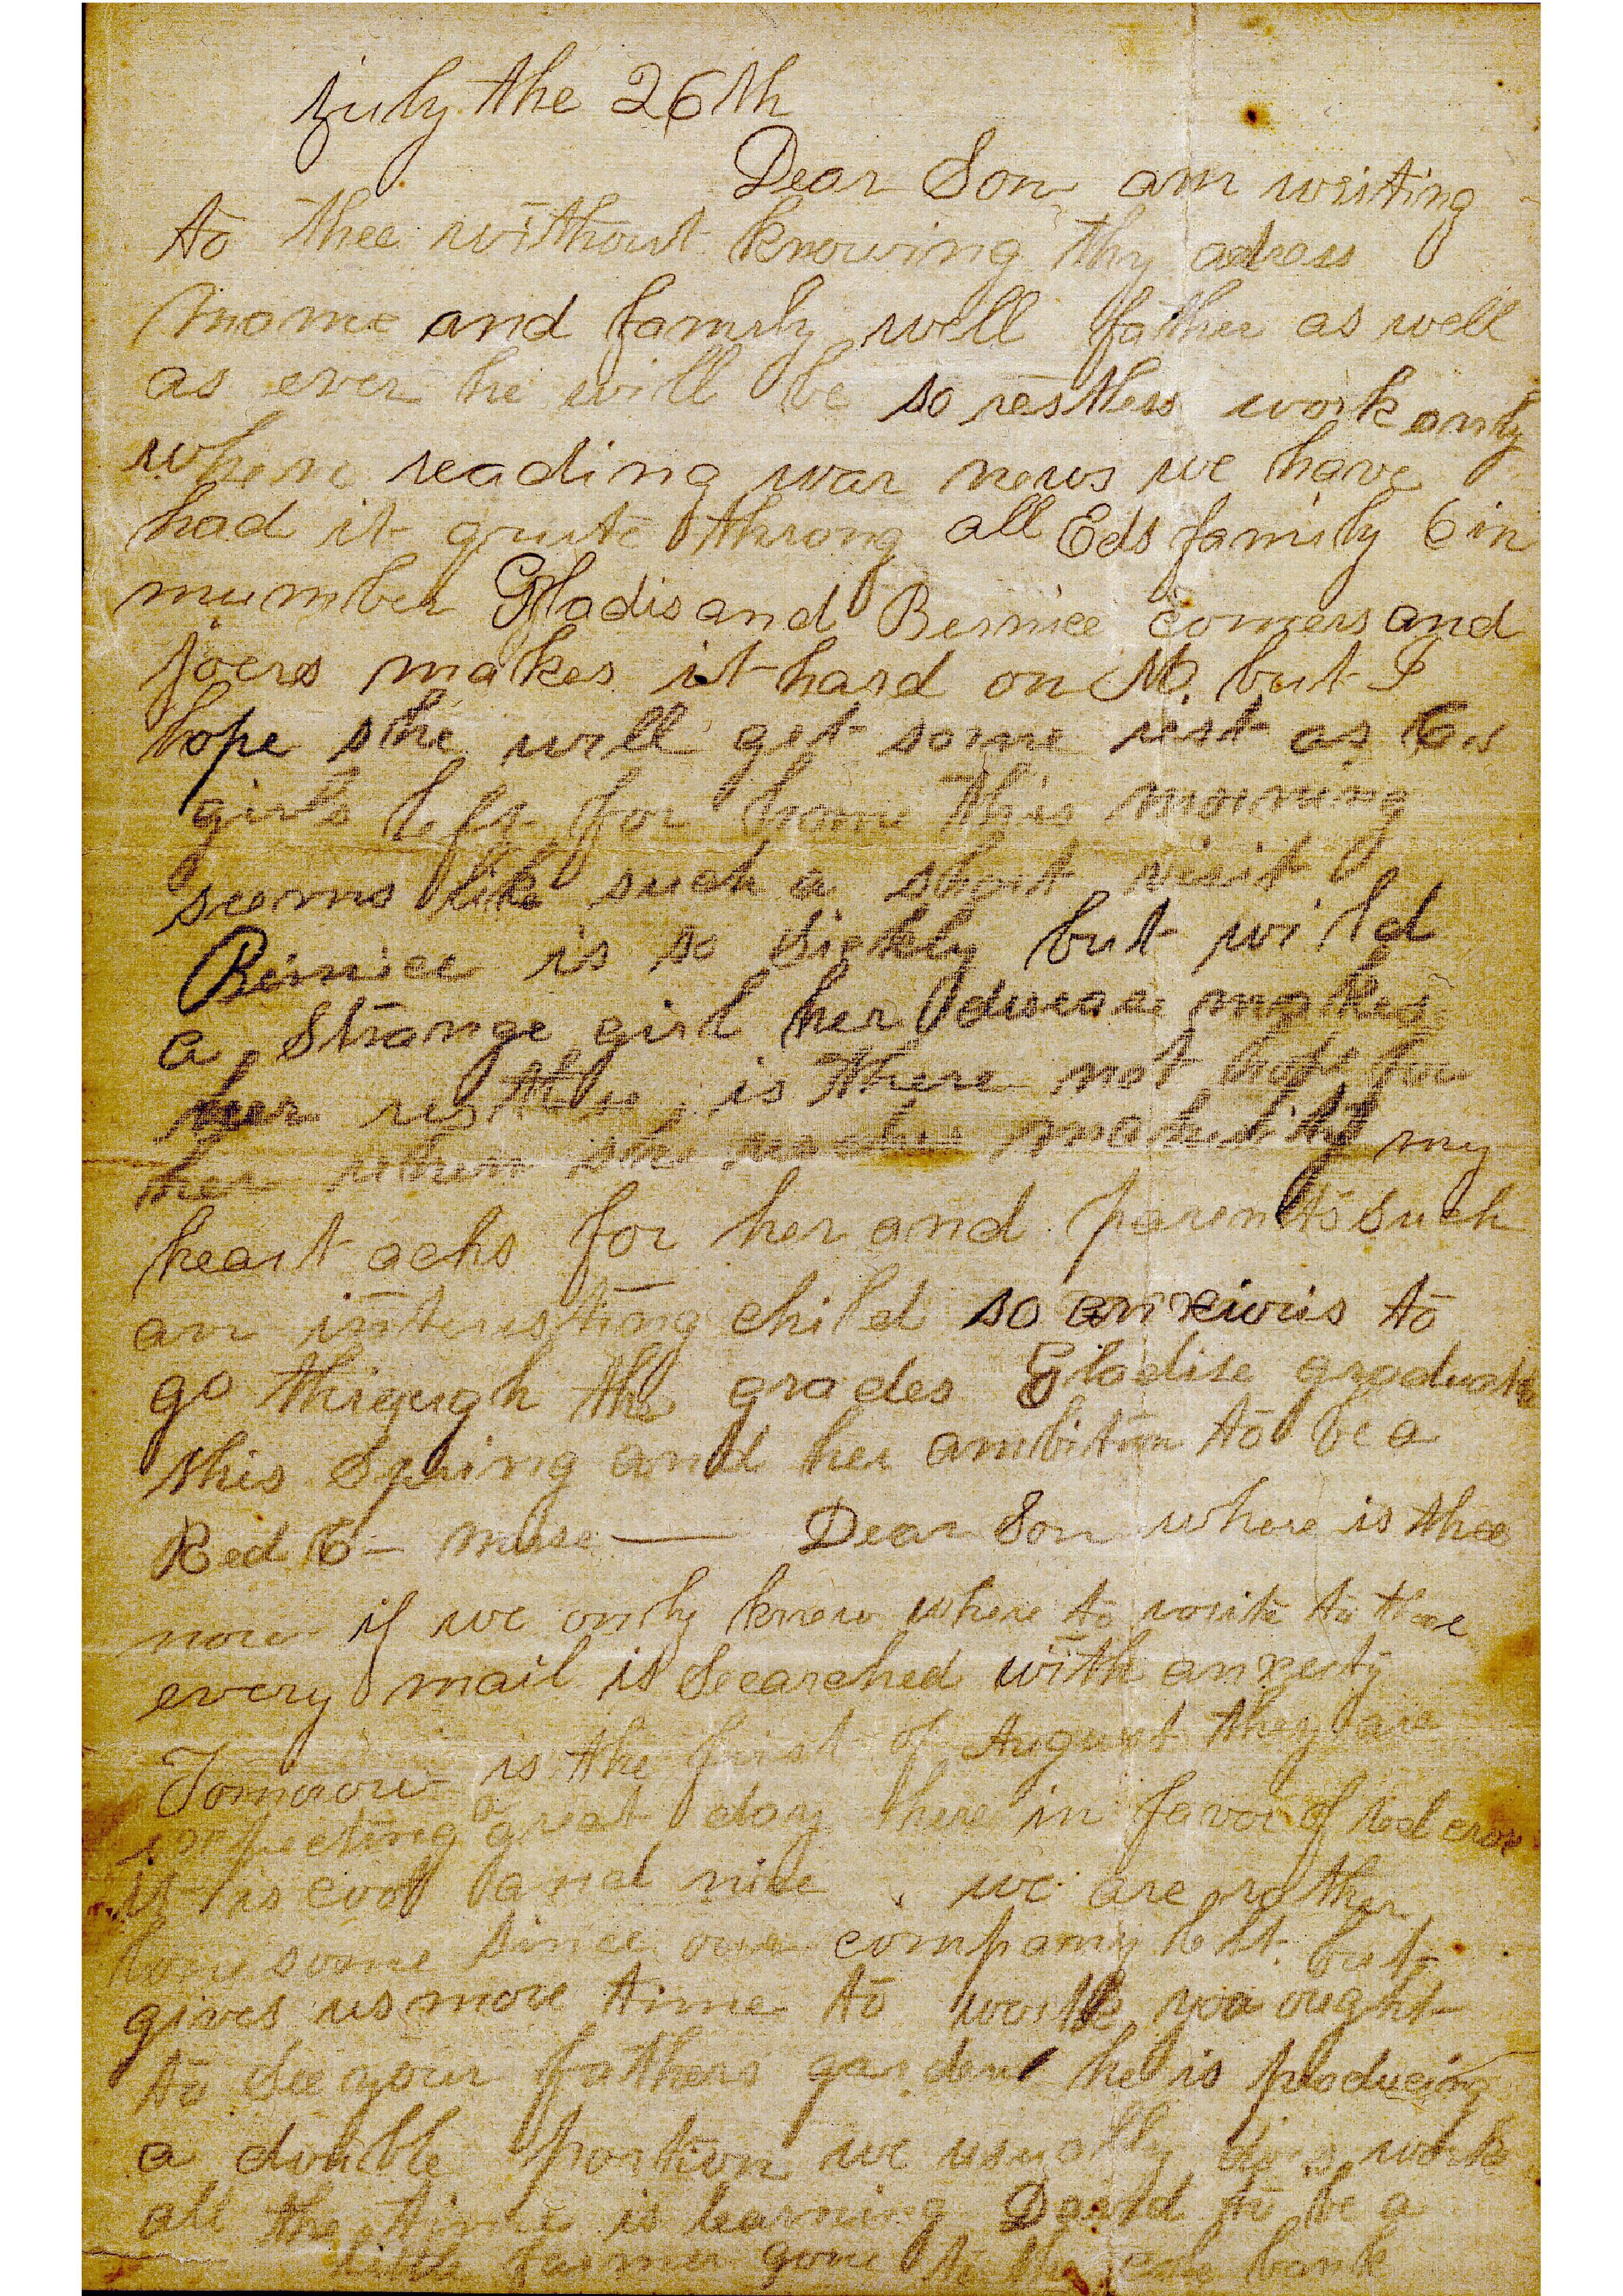 july the 26th
Dear Son am writing
to thee without knowing thy adress
mome and family well father as well
as ever he will be so restless work only
when reading war news we have
had it quite throng all Eds family 6 in
number Gladis and Bernice comers and
goers makes it hard on M. but I
hope she will get some rest as
girls left for home this morning
seems like such a short visit
Bernice is so sickly but wild
a strange girl her disease makes
her restless is there not hope for
her when she reaches maturity my
heart achs for her and parents such
an interesting child so anxious to
go through the grades Gladise graduate
this Spring and her ambition to be a
Red C - nurse — Dear Son where is thee
now if we only knew where to write to thee
every mail is Searched with anxety
Tomorow is the first of August they are
expecting a great day here in favor of red cross
it is cool and nice we are rather
lonesome since our company left but
gives us more time to write you ought
to See your fathers garden he is producing
a double portion we usually work
all the time is learning David to be a
little farmer gone to the bank